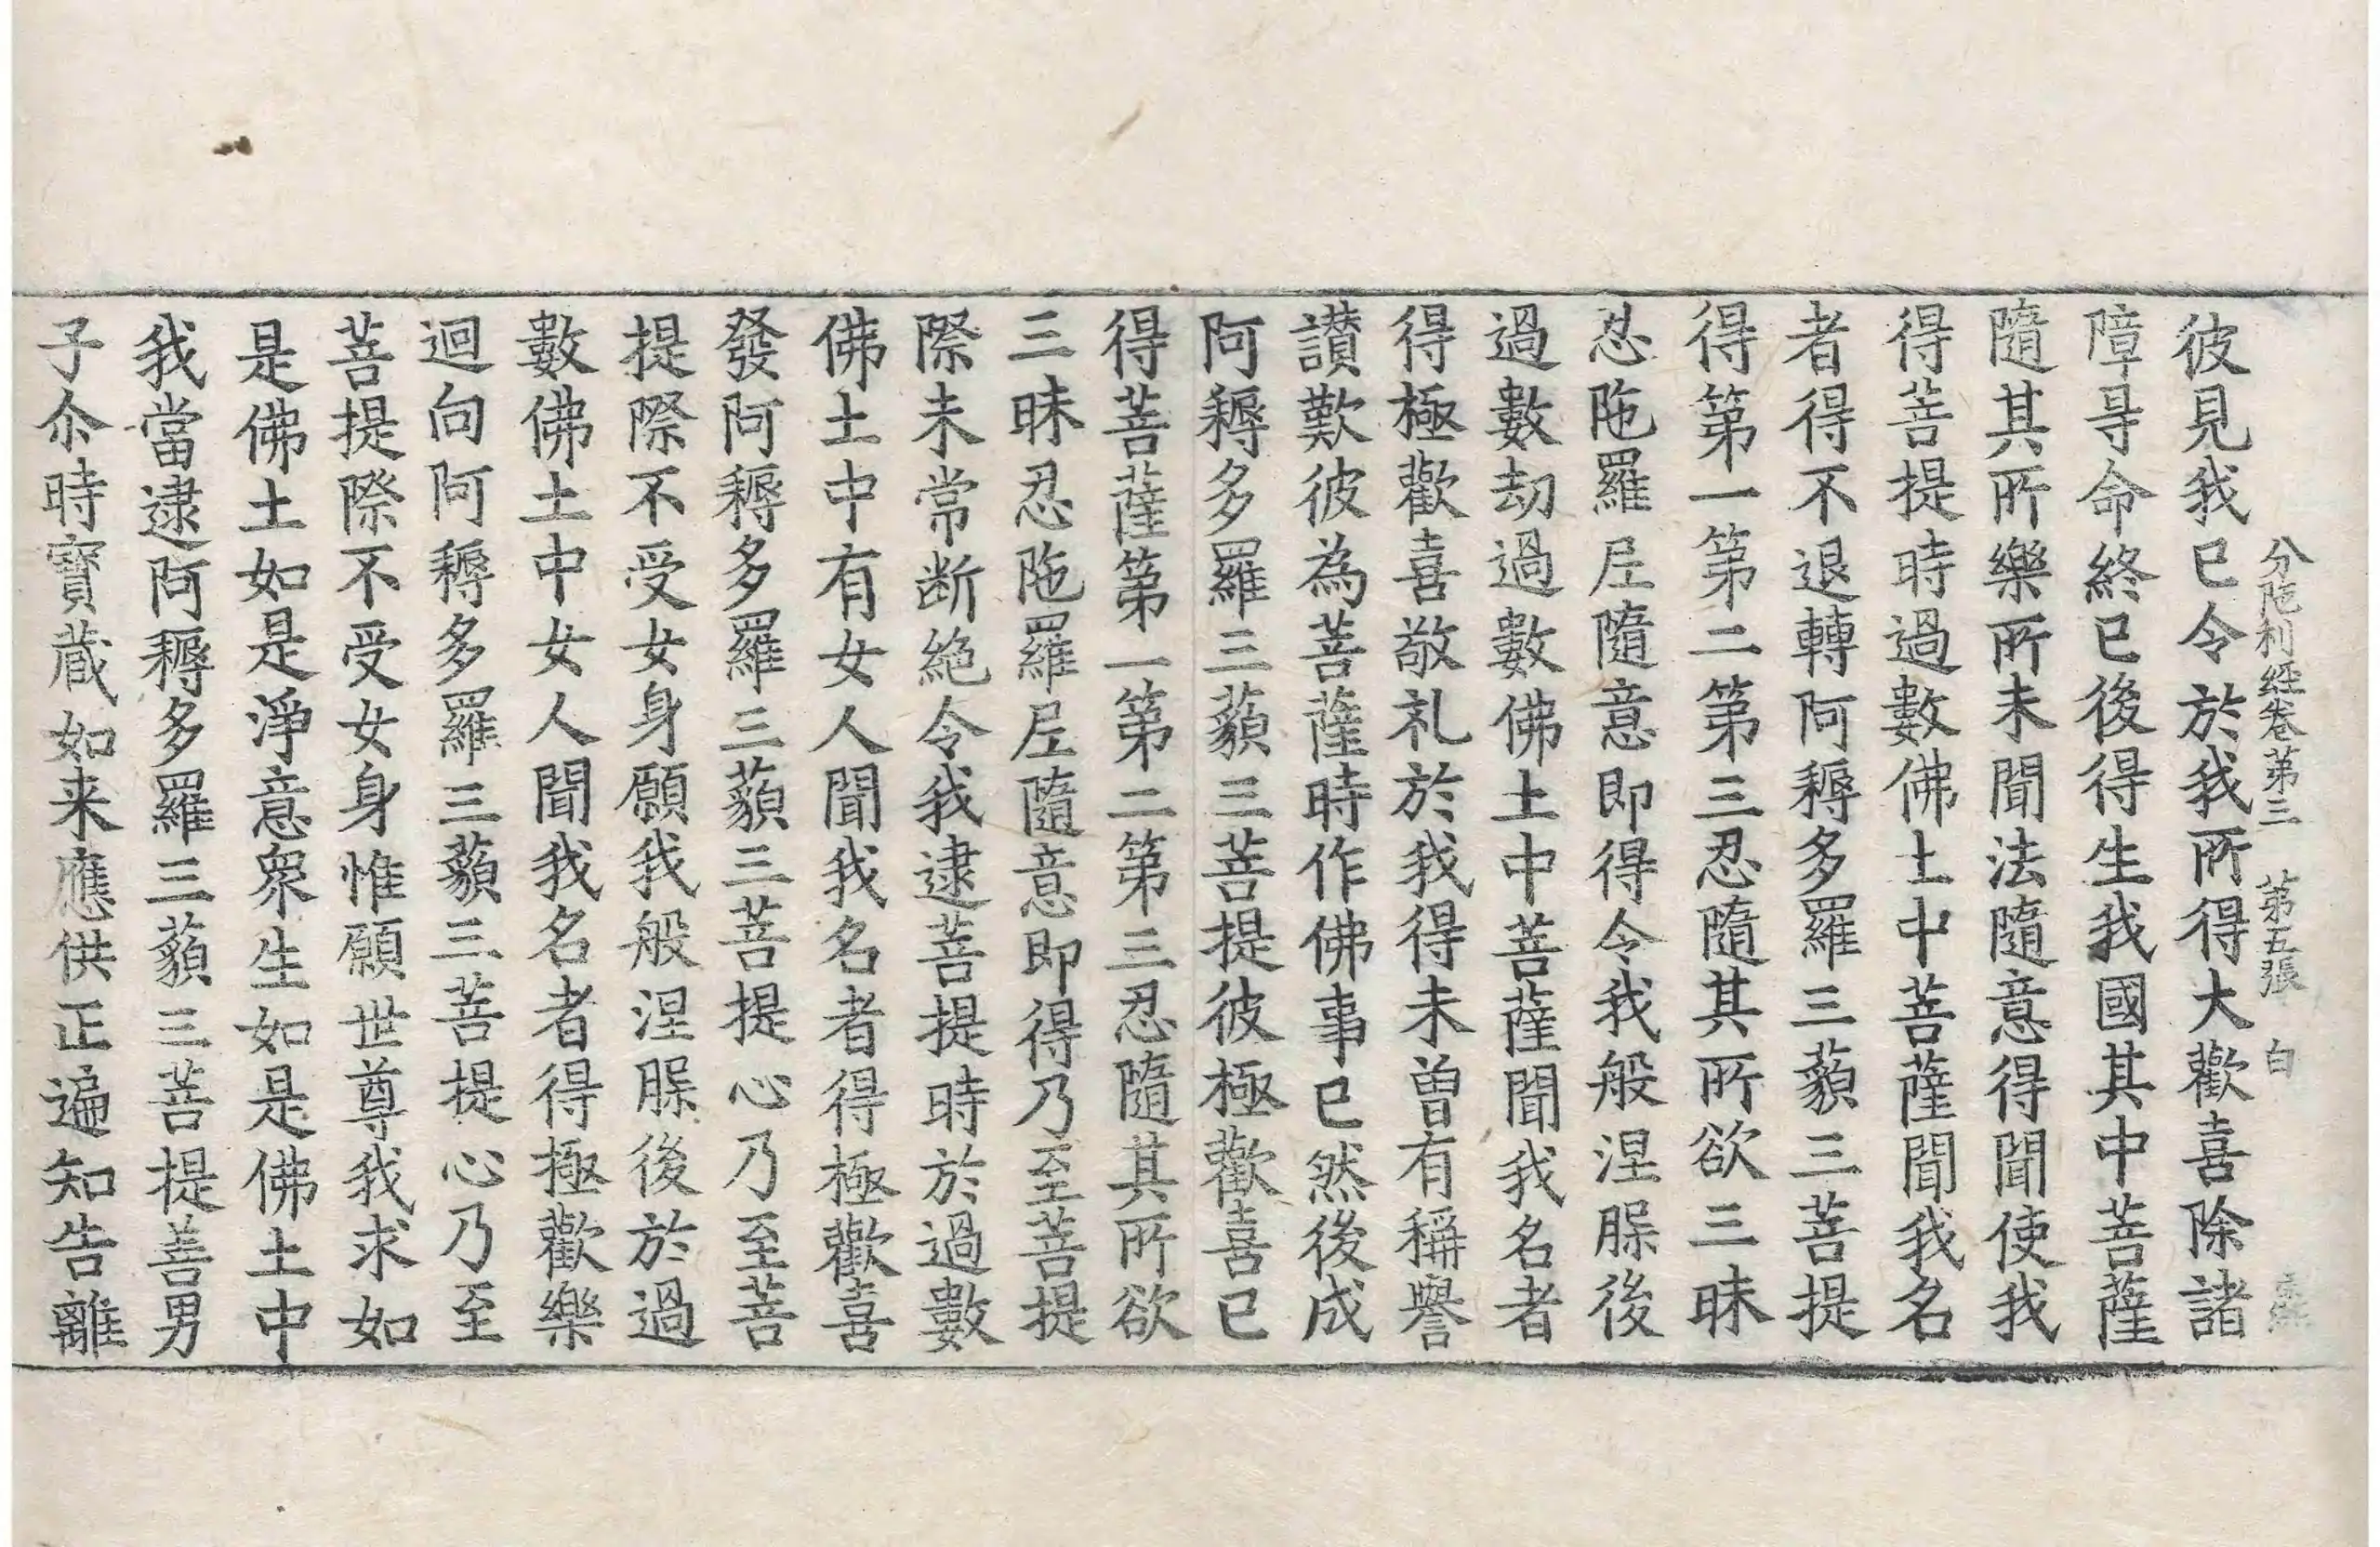 分陁利経卷第三 第五張 白
彼見我已令於我所得大歡喜除諸
障㝵命終已後得生我國其中菩薩
隨其所樂所未聞法隨意得聞使我
得菩提時過數佛土中菩薩聞我名
者得不退轉阿耨多羅三藐三菩提
得第一第二第三忍隨其所欲三昧
忍陁羅𡰱隨意即得令我般涅脲後
過數劫過數佛土中菩薩聞我名者
得極歡喜敬礼於我得未曾有稱譽
讃歎彼為菩薩時作佛事已然後成
阿耨多羅三藐三菩提彼極歡喜已
得菩薩第一第二第三忍隨其所欲
三昧忍陁羅𡰱隨意即得乃至菩提
際未常断絶令我逮菩提時於過數
佛土中有女人聞我名者得極歡喜
發阿耨多羅三藐三菩提心乃至菩
提際不受女身願我般涅脲後於過
數佛土中女人聞我名者得極歡樂
迴向阿耨多羅三藐三菩提心乃至
菩提際不受女身惟願世尊我求如
是佛土如是淨意衆生如是佛土中
我當逮阿耨多羅三藐三菩提善男
子尒時寳蔵如来應供正遍知告離